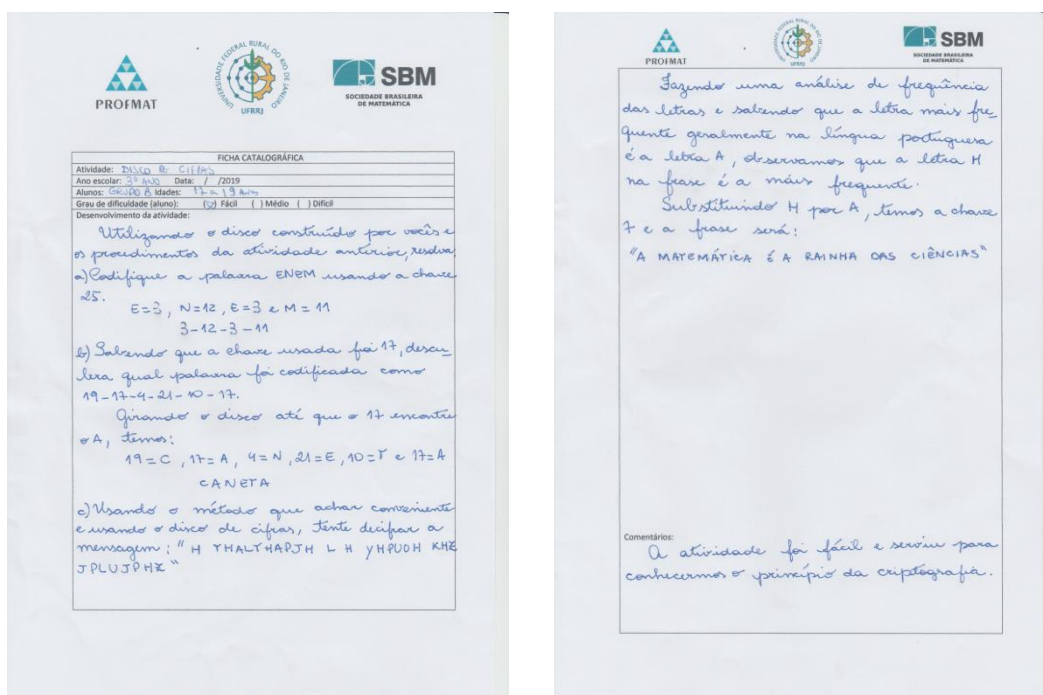 PROFMAT
UNIVERSIDADE FEDERAL RURAL DO RIO DE JANEIRO
UFRRJ
SBM
SOCIEDADE BRASILEIRA
DE MATEMÁTICA
FICHA CATALOGRÁFICA
Atividade: DISCO DE CIFRAS
Ano escolar: 3º ANO Data: / /2019
Alunos: GRUPO B Idades: 17 a 19 Anos
Grau de dificuldade (aluno): (x) Fácil ( ) Médio ( ) Difícil
Desenvolvimento da atividade:
Utilizando o disco construído por vocês e
os procedimentos da atividade anterior, resolva
a) Codifique a palavra ENEM usando a chave
25.
E=3, N=12, E=3 e M=11
3-12-3-11
b) Sabendo que a chave usada foi 17, descu_
bra qual palavra foi codificada como
19-17-4-21-10-17.
Girando o disco até que o 17 encontre
o A, temos:
19=C, 17=A, 4=N, 21=E, 10=T e 17=A
CANETA
c) Usando o método que achar conveniente
e usando o disco de cifras, tente decifrar a
mensagem: "H THALTHAPJH L H YHPUOH KHZ
JPLUJPHZ"
PROFMAT
UFRRJ
SBM
SOCIEDADE BRASILEIRA
DE MATEMÁTICA
Fazendo uma análise de frequência
das letras e sabendo que a letra mais fre_
quente geralmente na língua portuguesa
é a letra A, observamos que a letra H
na frase é a mais frequente.
Substituindo H por A, temos a chave
7 e a frase será:
"A MATEMÁTICA É A RAINHA DAS CIÊNCIAS"
Comentários:
A atividade foi fácil e serviu para
conhecermos o princípio da criptografia.